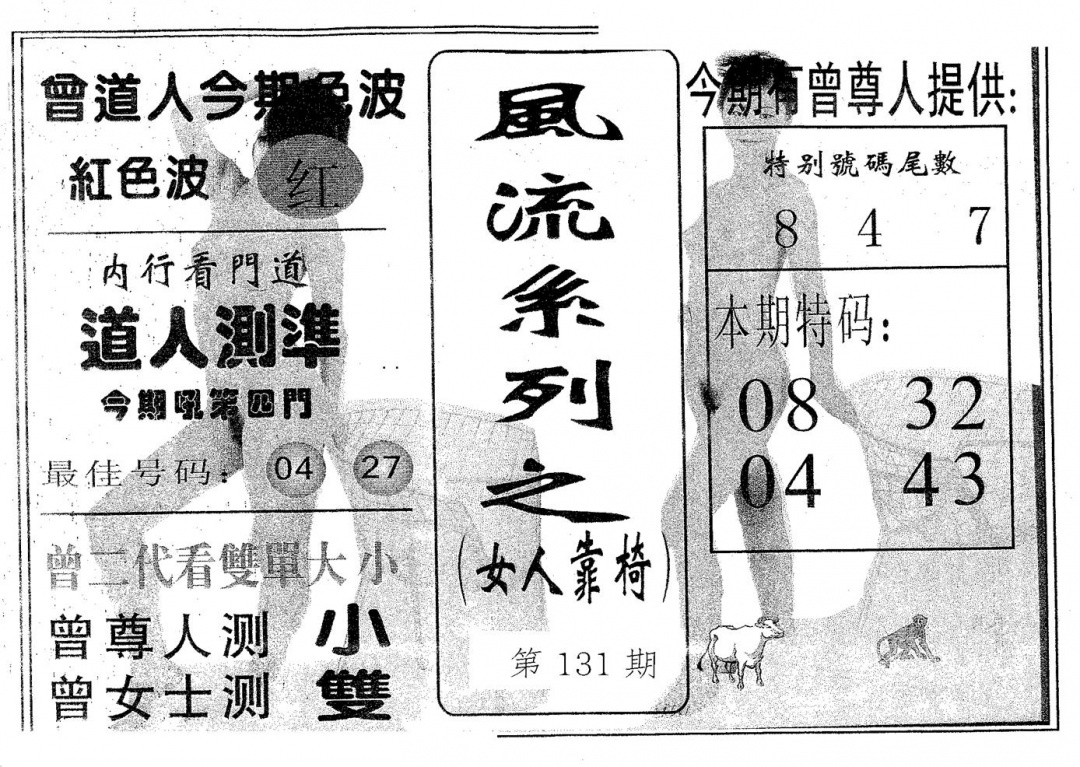 曾道人今期色波
紅色波 红
内行看門道
道人測準
今期吼第四門
最佳号码: 04 27
曾二代看雙單大小
曾尊人测 小
曾女士测 雙
風流系列之
(女人靠椅)
第 131 期
今期有曾尊人提供:
特别號碼尾數
8 4 7
本期特码:
08 32
04 43